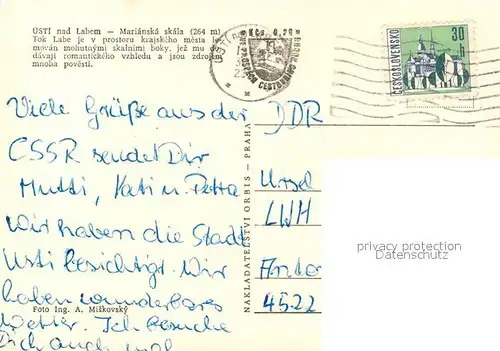 ÚSTÍ nad Labem — Mariánská skála (264 m)
Tok Labe je v prostoru krajského města le-
mován mohutnými skalními boky, jež mu do-
dávají romantického vzhledu a jsou zdrojem
mnoha pověstí.
Kčs 0,20
ČESKOSLOVENSKO
30 h
Viele Grüße aus der
ČSSR sendet Dir
Mutti, Kati u. Petra
Wir haben die Stadt
Usti besichtigt. Wir
haben wunderbares
Wetter. Ich besuche
Dich auch mal
Foto Ing. A. Miškovský
NAKLADATELSTVÍ ORBIS — PRAHA
DDR
Ursel
LWH
4522
privacy protection
Veröffentlichungsschutz